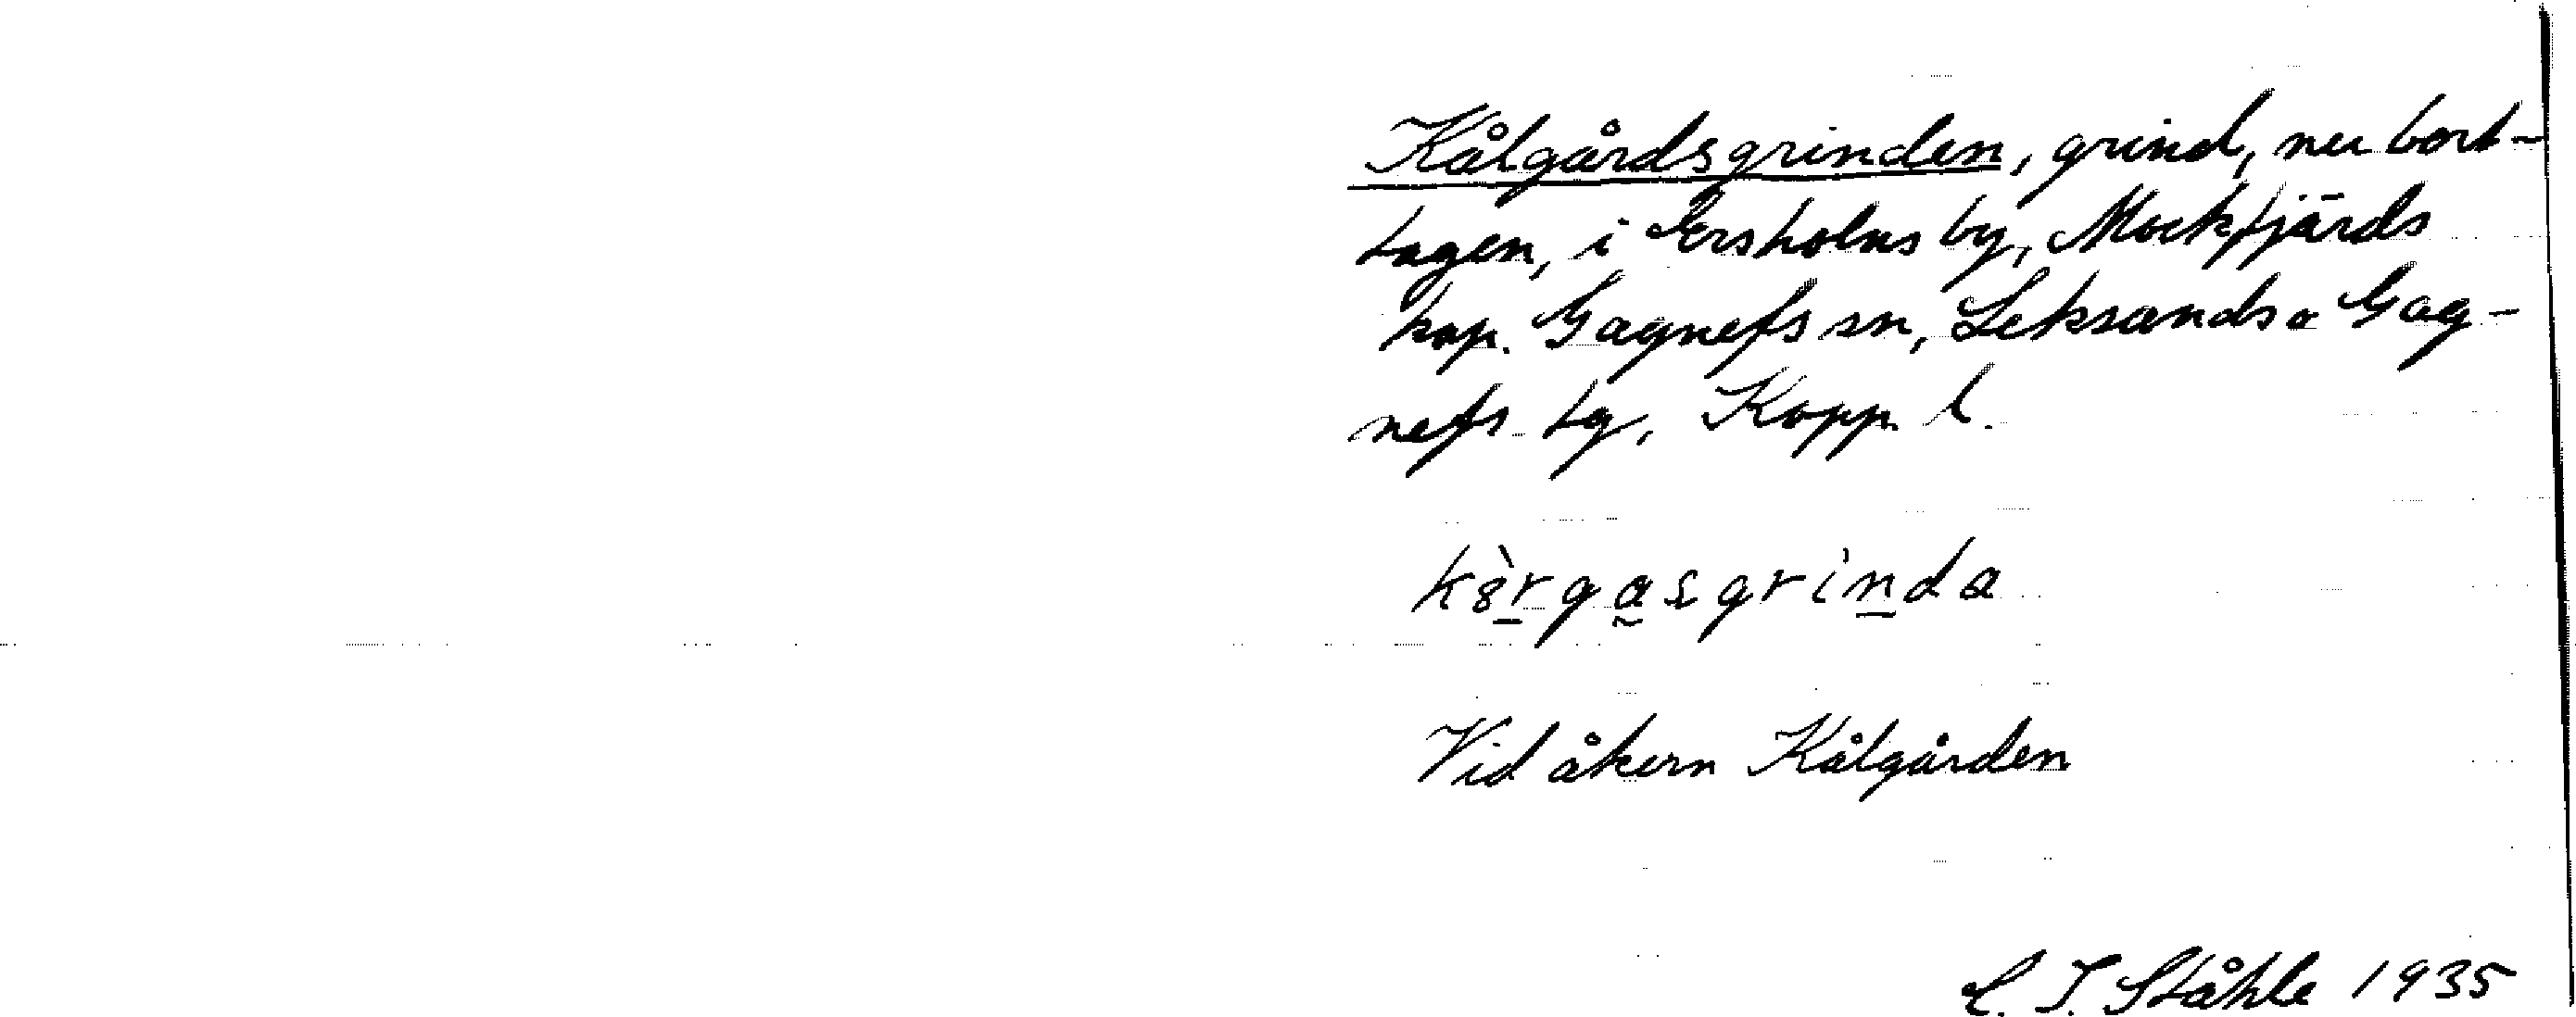 Kålgårdsgrinden, grind, nu bort-
tagen, i Ersholns by, Mockfjärds
kap. Gagnefs sn, Leksands o Gag-
nefs tg, Kopp. l.
kȣ̀rgasgrinda
Vid åkern Kålgården
C. I. Ståhle 1935